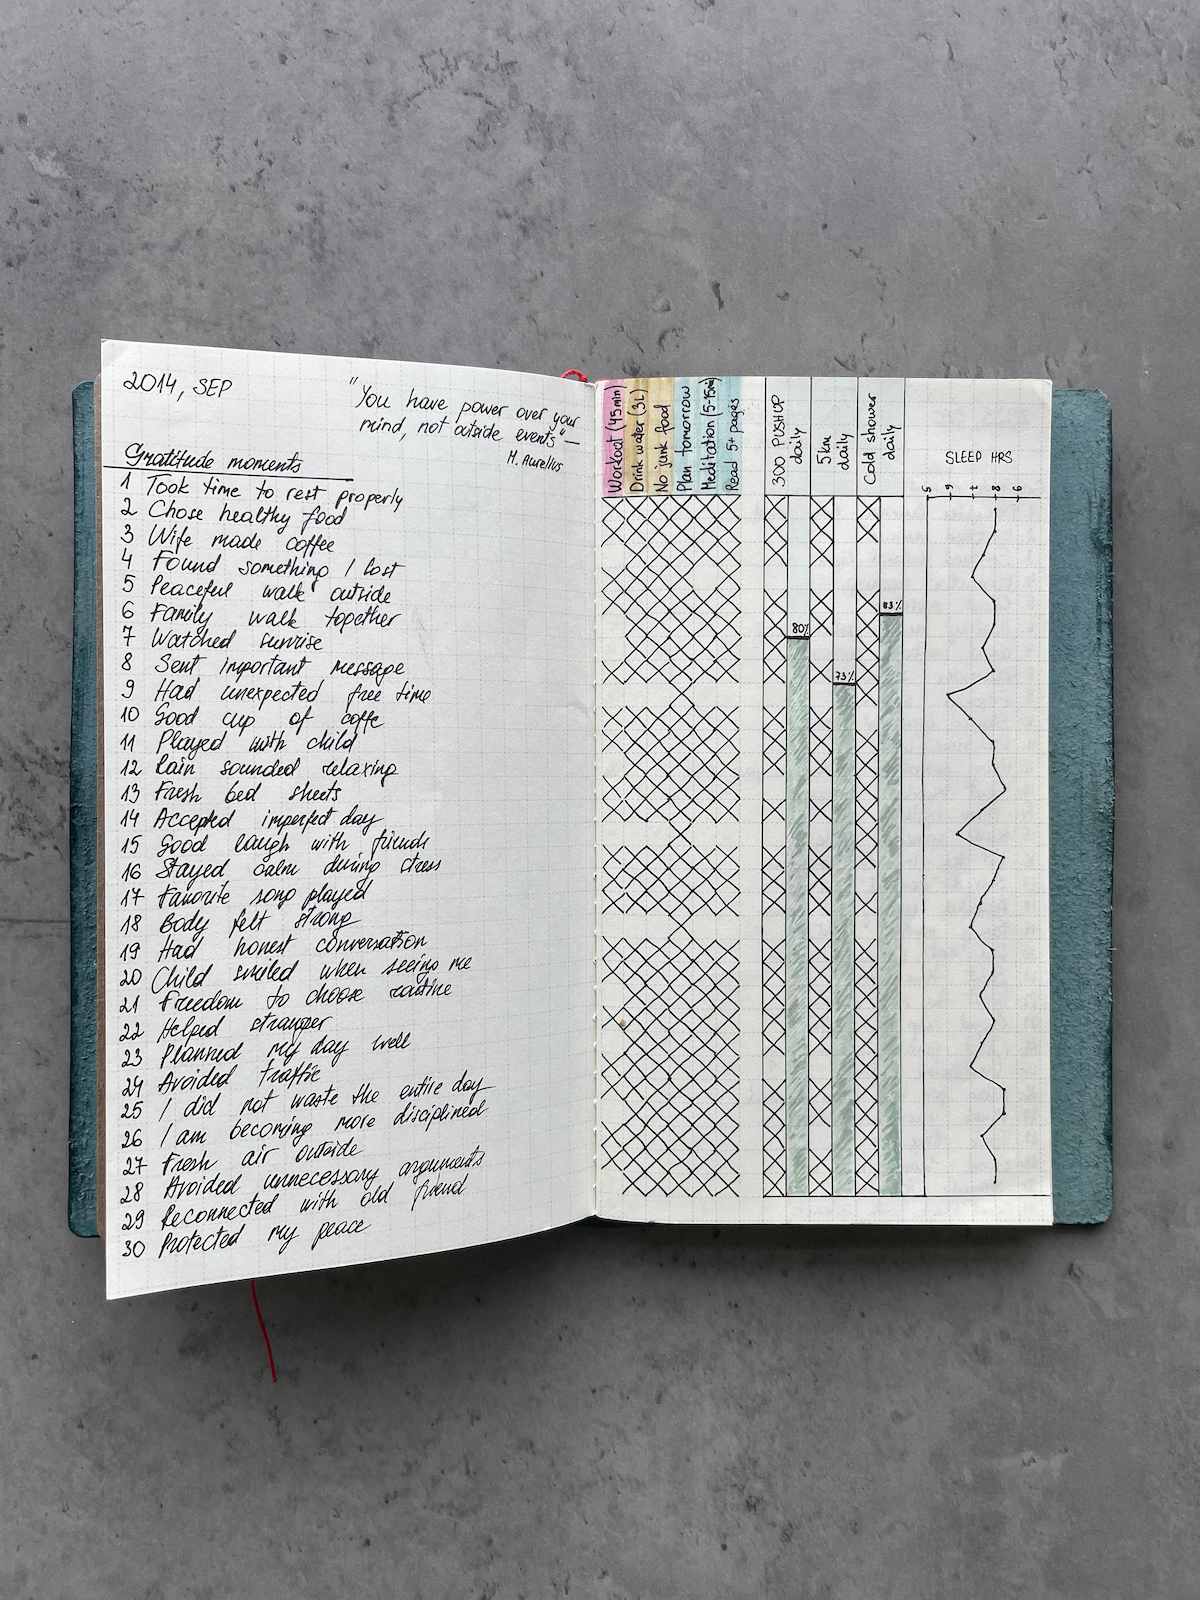 2014, SEP
"You have power over your
mind, not outside events" —
M. Aurelius
Gratitude moments
1 Took time to rest properly
2 Chose healthy food
3 Wife made coffee
4 Found something I lost
5 Peaceful walk outside
6 Family walk together
7 Watched sunrise
8 Sent important message
9 Had unexpected free time
10 Good cup of coffe
11 Played with child
12 Rain sounded relaxing
13 Fresh bed sheets
14 Accepted imperfect day
15 Good laugh with friends
16 Stayed calm during stress
17 Favorite song played
18 Body felt strong
19 Had honest conversation
20 Child smiled when seeing me
21 Freedom to choose routine
22 Helped stranger
23 Planned my day well
24 Avoided traffic
25 I did not waste the entire day
26 I am becoming more disciplined
27 Fresh air outside
28 Avoided unnecessary arguments
29 Reconnected with old friend
30 Protected my peace
Workout (45min)
Drink water (3L)
No junk food
Plan tomorrow
Meditation (5-15min)
Read 5+ pages
300 PUSHUP
daily
5km
daily
Cold shower
daily
SLEEP HRS
5 6 7 8 9
83%
80%
73%